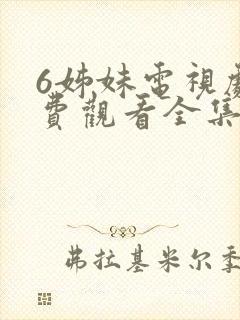 6姊妹電視劇
費觀看全集
弗拉基米尔季